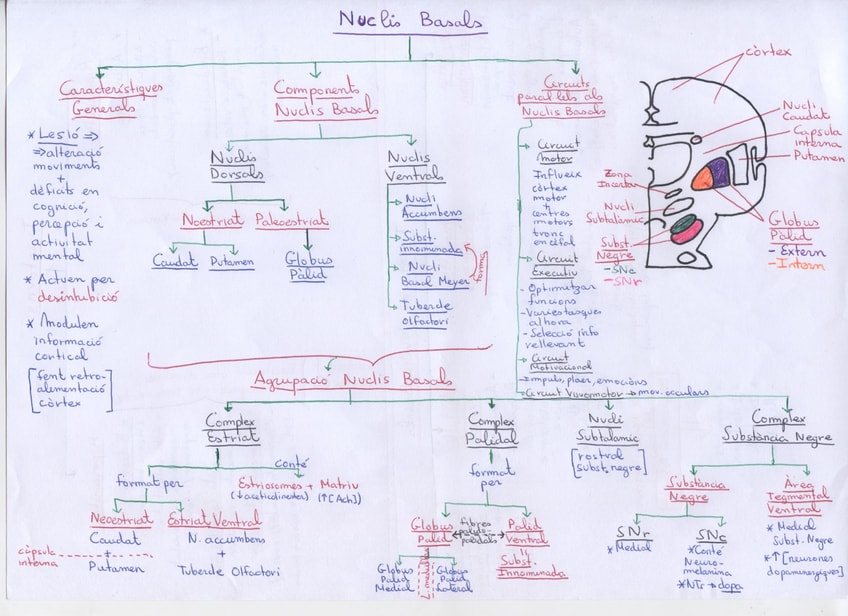 Nuclis Basals
Característiques
Generals
* Lesió ⇒
⇒ alteració
moviments
+
dèficits en
cognició,
percepció i
activitat
mental
* Actuen per
desinhibició
* Modulen
informació
cortical
[fent retro-
alimentació
còrtex]
Components
Nuclis Basals
Nuclis
Dorsals
Neostriat
Paleostriat
Caudat
Putamen
Globus
Pàlid
Nuclis
Ventral
Nucli
Accumbens
Subst.
innominada
Nucli
Basal Meyer
forma
Tuberde
Olfactori
Circuits
paral·lels als
Nuclis Basals
Circuit
motor
Influeix
còrtex
motor
+
centres
motors
tronc
encèfal
Circuit
Executiu
- Optimitzar
funcions
- Varies tasques
alhora
- Selecció info
rellevant
Circuit
Motivacional
- Impuls, plaer, emocions
Circuit → mov. oculars
còrtex
Nucli
Caudat
Capsula
interna
Putamen
Zona
Incerta
Nucli
Subtalàmic
Subst.
Negre
- SNc
- SNr
Globus
Pàlid
- Extern
- Intern
Agrupació Nuclis Basals
Complex
Estriat
format per
conté
Estriosomes + Matriu
(↑[Ach])
Neoestriat
Caudat
+
Putamen
càpsula
interna
Estriat Ventral
N. accumbens
+
Tuberde Olfactori
Complex
Palidal
format
per
Globus
Pàlid
fibres
palido-
palidals
Palid
Ventral
Subst.
Innominada
Globus
Palid
Medial
Globus
Palid
Lateral
Nucli
Subtalamic
[rostral
subst. negre]
Complex
Substància Negre
Substància
Negre
SNr
* Medial
SNc
* Conté
Neuro-
melanina
* NTs → dopa
Àrea
Tegmental
Ventral
* Medial
Subst. Negre
* ↑ [neurones
dopaminergiques]